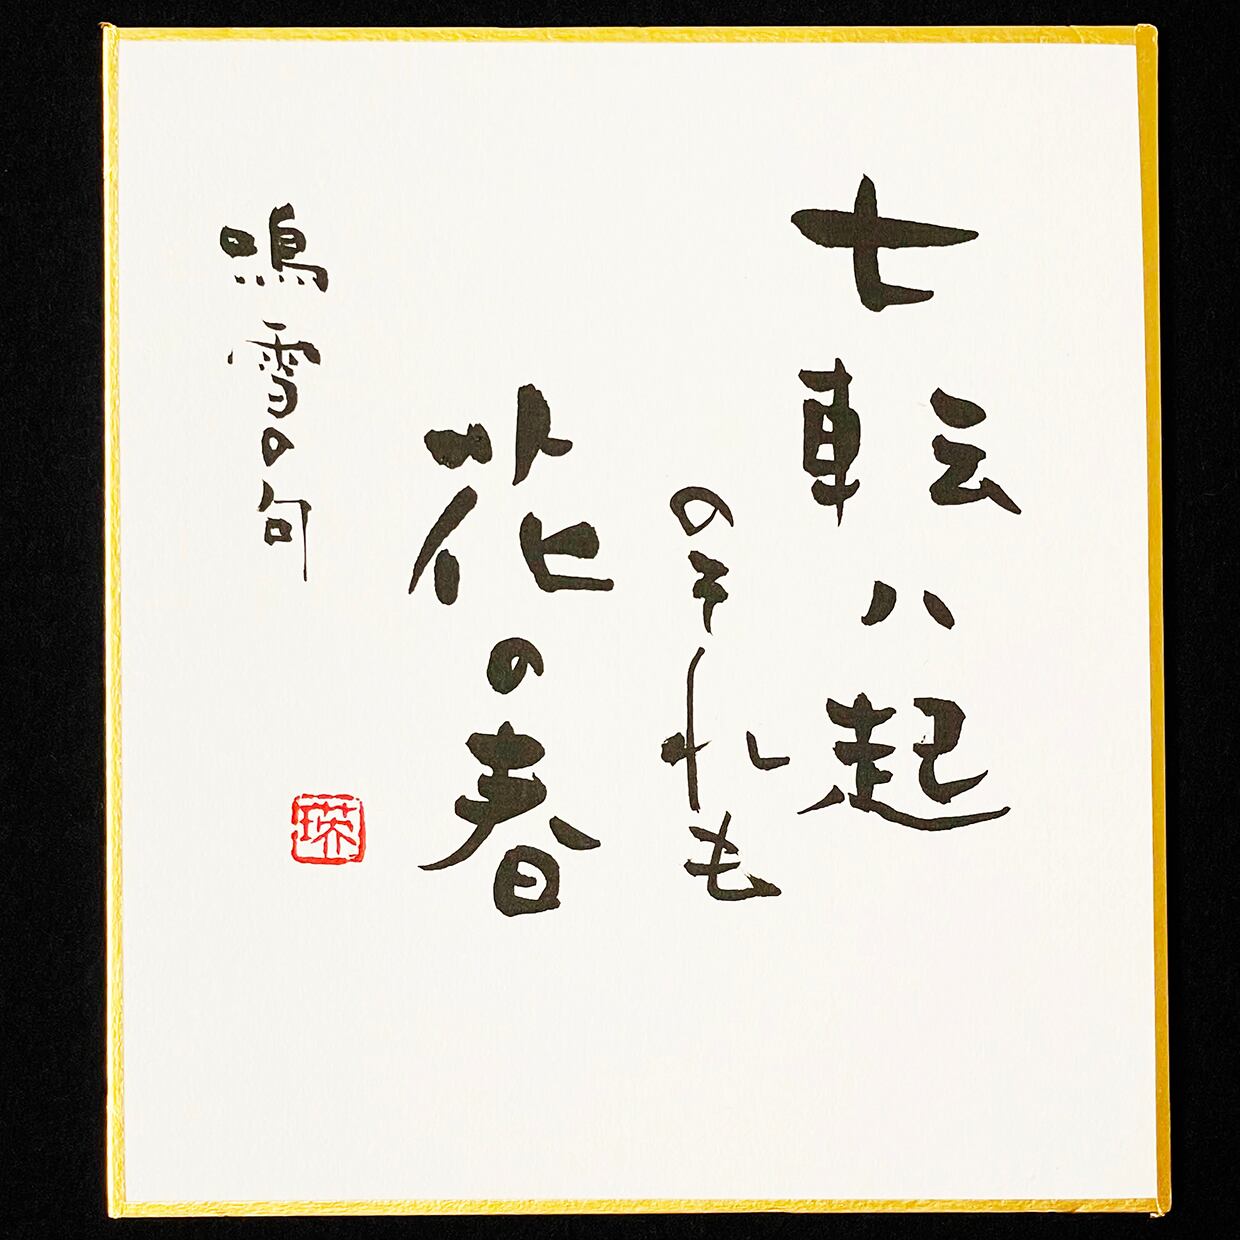 七転八起
のそれも
花の春
鳴雪の句
瑛